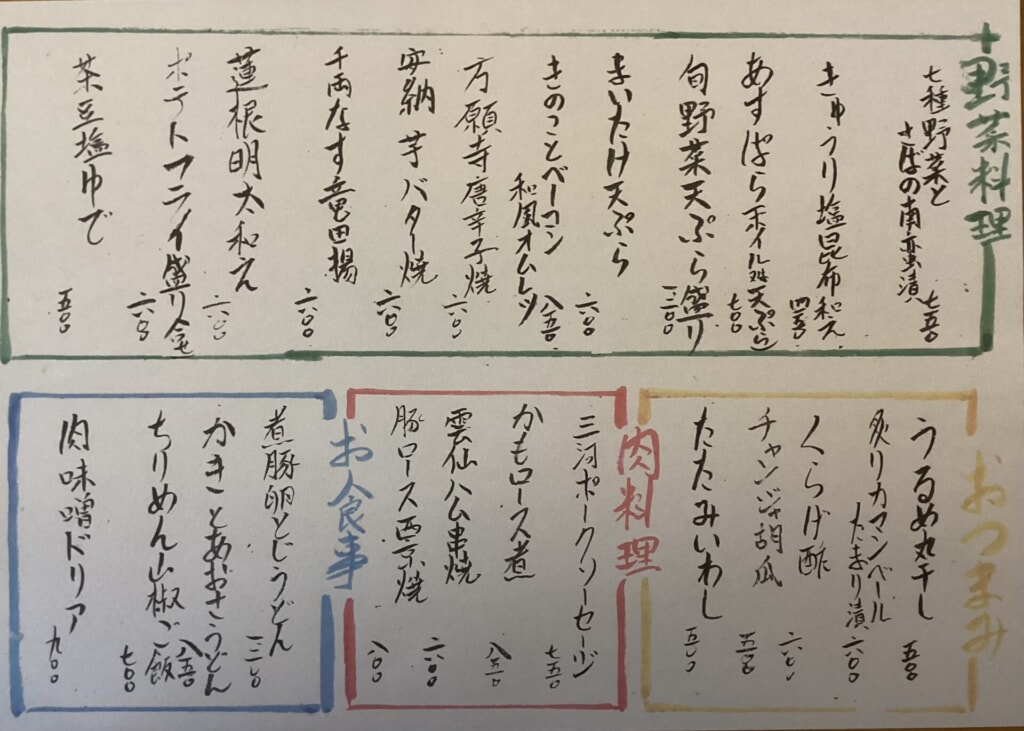 野菜料理
七種野菜と
さばの南蛮漬
七五〇
きゅうり塩昆布和え
四五〇
あすぱらホイル焼
天ぷら
七〇〇
旬野菜天ぷら盛り
一二〇〇
まいたけ天ぷら
六〇〇
きのことベーコン
和風オムレツ
八五〇
万願寺唐辛子焼
六〇〇
安納芋バター焼
六〇〇
千両なす竜田揚
六〇〇
蓮根明太和え
六〇〇
ポテトフライ盛り合せ
六〇〇
茶豆塩ゆで
五〇〇
おつまみ
うるめ丸干し
五〇〇
炙りカマンベール
たまり漬
六〇〇
くらげ酢
六〇〇
チャンジャ胡瓜
五五〇
たたみいわし
五〇〇
肉料理
三河ポークソーセージ
七五〇
かもロース煮
八五〇
雲仙ハム串焼
六〇〇
豚ロース西京焼
八〇〇
お食事
煮豚卵とじうどん
かきとあおさうどん
八五〇
ちりめん山椒ご飯
七〇〇
肉味噌ドリア
九〇〇